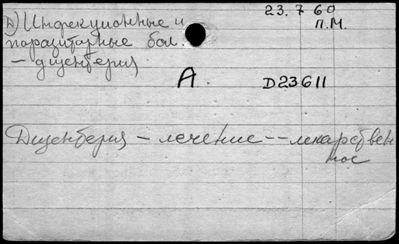 А) Инфекционные и
паразитарные бол.
— дизентерия
23.7 60
П.М.
А.
D23611
Дизентерия — лечение -- лекарствен
ное